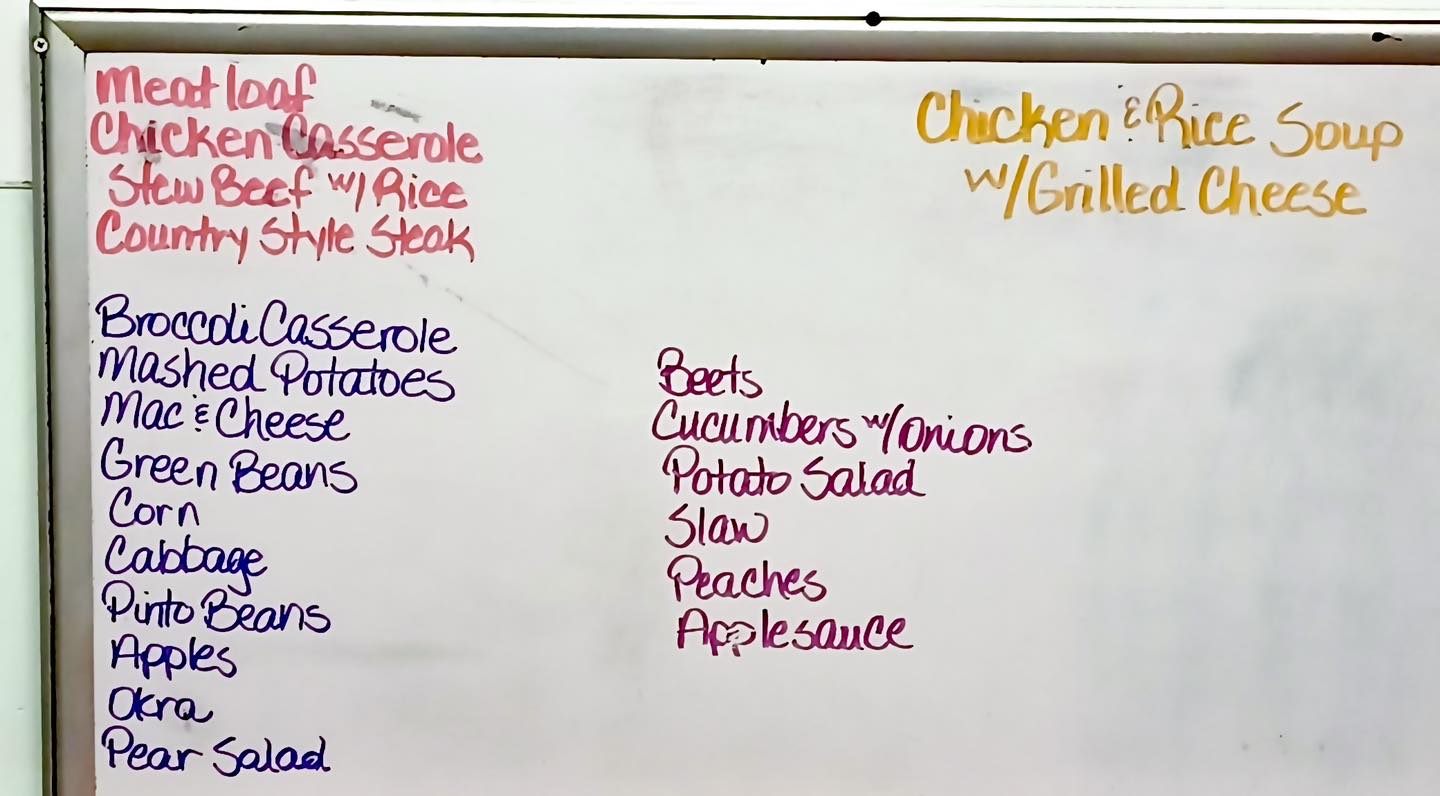 Meatloaf
Chicken Casserole
Stew Beef w/ Rice
Country Style Steak
Broccoli Casserole
Mashed Potatoes
Mac & Cheese
Green Beans
Corn
Cabbage
Pinto Beans
Apples
Okra
Pear Salad
Beets
Cucumbers w/Onions
Potato Salad
Slaw
Peaches
Applesauce
Chicken & Rice Soup
w/Grilled Cheese